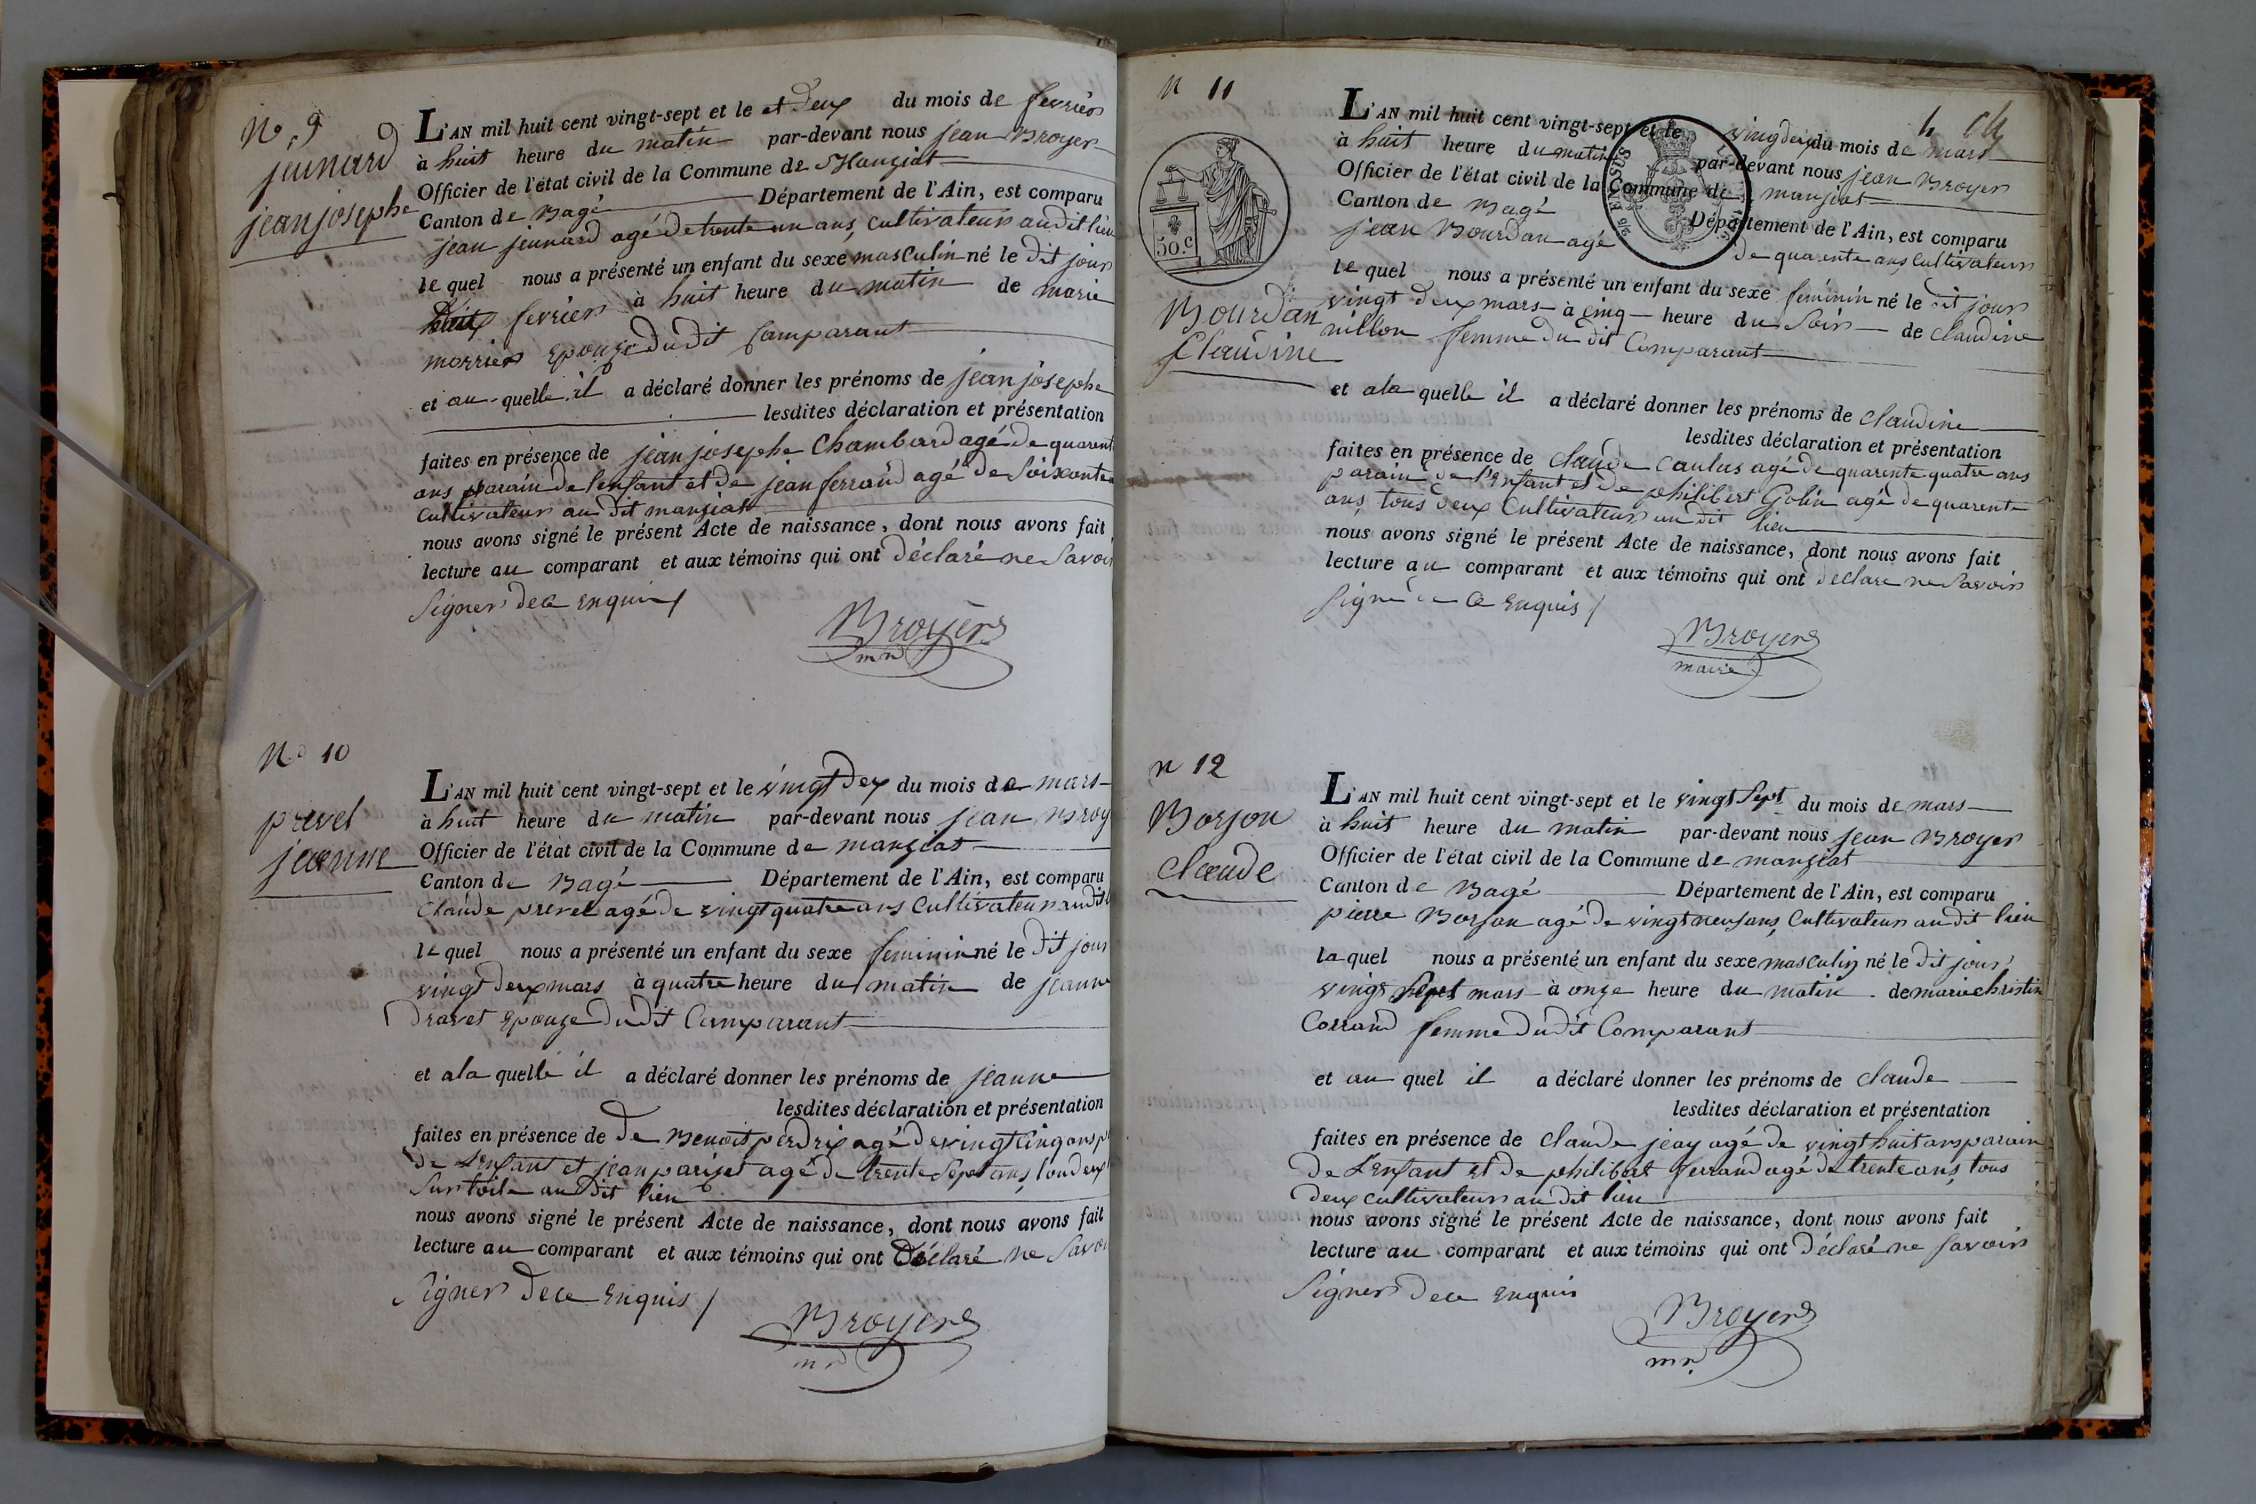 N.° 9 9
jeunard
jean josephe
L'AN mil huit cent vingt-sept et le et deux du mois de fevrier
à huit heure du matin par-devant nous jean Broyer
Officier de l'état civil de la Commune de Mangiat
Canton de Bagé Département de l'Ain, est comparu
jean jeunard agé de trente un ans, cultivateur au dit lieu
le quel nous a présenté un enfant du sexe masculin né le dit jour
fevrier à huit heure du matin de marie
morrier epouze du dit Comparant
et au quelle il a déclaré donner les prénoms de jean josephe
lesdites déclaration et présentation
faites en présence de jean josephe Chambard agé de quarent
ans parain de l'enfant et de jean ferrand agé de Soixante
Cultivateur au dit mangiat
nous avons signé le présent Acte de naissance, dont nous avons fait
lecture au comparant et aux témoins qui ont déclaré ne Savoir
Signer de ce Enquis /
Broyer
mr
N° 10
prevel
jeanne
L'AN mil huit cent vingt-sept et le vingt dex du mois de mars
à huit heure du matin par-devant nous jean Broy
Officier de l'état civil de la Commune de mangiat
Canton de Bagé Département de l'Ain, est comparu
Claude prevel agé de vingt quatre ans Cultivateur au dit
le quel nous a présenté un enfant du sexe feminin né le dit jour
vingt deux mars à quatre heure du matin de jeanne
Dravet Epouze du dit Comparant
et a la quelle il a déclaré donner les prénoms de jeanne
lesdites déclaration et présentation
faites en présence de de Benoit perdrix agé de vingt cinq ans p
de L'enfant et jean parizet agé de trente Sept ans, tou deux
Sur toile au dit lieu
nous avons signé le présent Acte de naissance, dont nous avons fait
lecture au comparant et aux témoins qui ont Déclaré ne Savoi
Signer de ce Enquis /
Broyer
mr
N 11
4
30.C
Bourdan
Claudine
L'AN mil huit cent vingt-sept et le vingt deux du mois de mars
à huit heure du matin par-devant nous jean Broyer
Officier de l'état civil de la Commune de mangiat
Canton de Bagé Département de l'Ain, est comparu
jean Bourdan agé de quarente ans, Cultivateur
le quel nous a présenté un enfant du sexe feminin né le dit jour
vingt deux mars à cinq heure du Soir de Claudine
nillon femme du dit Comparant
et a la quelle il a déclaré donner les prénoms de Claudine
lesdites déclaration et présentation
faites en présence de Claude Caulas agé de quarente quatre ans
parain de l'Enfant et de philibert Golin agé de quarente
ans, tous deux Cultivateur au dit lieu
nous avons signé le présent Acte de naissance, dont nous avons fait
lecture au comparant et aux témoins qui ont declare ne Savoir
Signé de ce Enquis /
Broyer
maire
n 12
Borjon
claude
L'AN mil huit cent vingt-sept et le vingt Sept du mois de mars
à huit heure du matin par-devant nous jean Broyer
Officier de l'état civil de la Commune de mangiat
Canton de Bagé Département de l'Ain, est comparu
pierre Borjon agé de vingt neuf ans, Cultivateur au dit lieu
la quel nous a présenté un enfant du sexe masculin né le dit jour
vingt Sept mars à onze heure du matin de marie christin
Corrand femme du dit Comparant
et au quel il a déclaré donner les prénoms de claude
lesdites déclaration et présentation
faites en présence de claude jeay agé de vingt huit ans parain
de L'Enfant et de philibert ferrand agé de trente ans, tous
deux cultivateur au dit lieu
nous avons signé le présent Acte de naissance, dont nous avons fait
lecture au comparant et aux témoins qui ont déclaré ne savoir
Signer de ce Enquis
Broyer
mr.